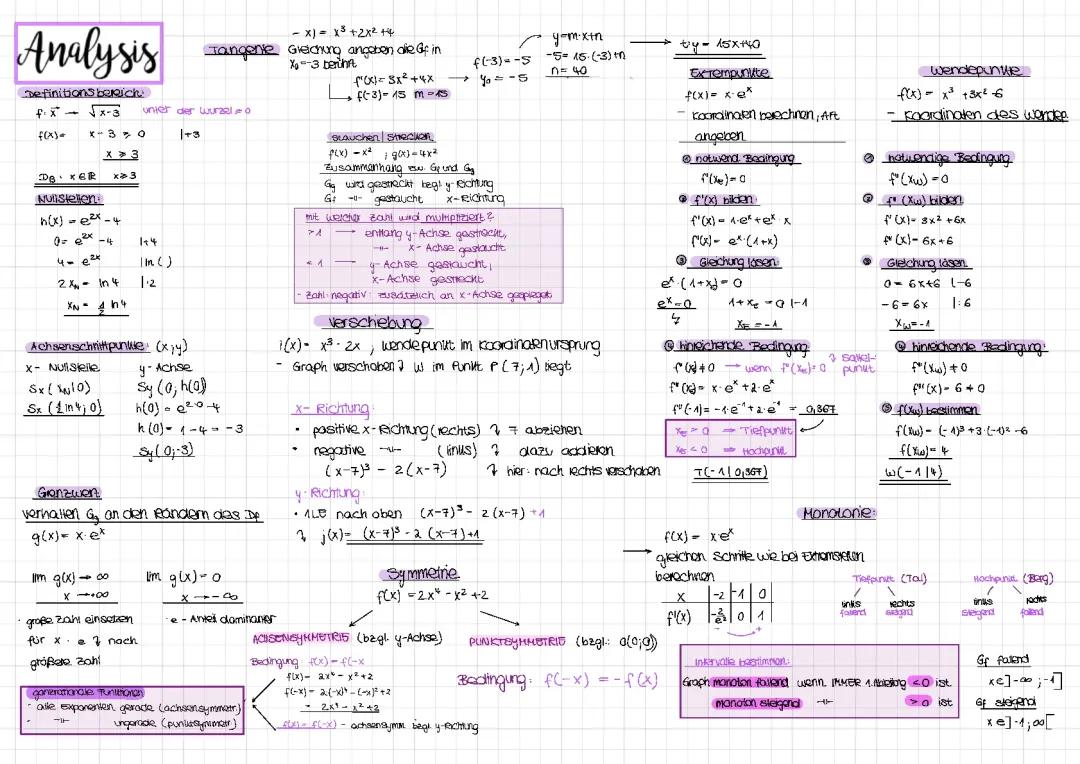 Analysis
Definitionsbereich:
f: x → √x-3 unter der Wurzel ≥ 0
f(x)= x-3 ≥ 0 |+3
x ≥ 3
D_B: x ∈ ℝ x≥3
Nullstellen:
h(x) = e^2x - 4
0 = e^2x - 4 |+4
4 = e^2x |ln( )
2x_N = ln 4 |:2
x_N = 1/2 ln 4
Achsenschnittpunkte: (x;y)
x- Nullstelle
S_x (x_N|0)
S_x (1/2 ln 4; 0)
y-Achse
Sy (0; h(0))
h(0) = e^2·0 - 4
h(0) = 1 - 4 = -3
Sy (0;-3)
Grenzwert:
Verhalten G_g an den Rändern des D_f
g(x) = x·e^x
lim g(x) → ∞
x → +∞
· große Zahl einsetzen
für x · e → noch
größere Zahl
lim g(x) = 0
x → -∞
· e - Anteil dominanter
ganzrationale Funktionen
- alle Exponenten gerade (achsensymmetr.)
- -||- ungerade (punktsymmetr.)
Tangente
- x) = x³ + 2x² + 4
Gleichung angeben die G_f in
x_0 = -3 berührt
f'(x) = 3x² + 4x
f'(-3) = 15 m = 15
f(-3) = -5
y_0 = -5
y = m·x+n
-5 = 15·(-3)+n
n = 40
t: y = 15x+40
stauchen | strecken
f(x) = x² ; g(x) = 4x²
Zusammenhang zw. G_f und G_g
G_g wird gestreckt bezgl. y-Richtung
G_f -||- gestaucht x-Richtung
mit welcher Zahl wird multipliziert?
>1 → entlang y-Achse gestreckt,
-||- x-Achse gestaucht
<1 → y-Achse gestaucht,
x-Achse gestreckt
- Zahl negativ: zusätzlich an x-Achse gespiegelt
Verschiebung
i(x) = x³ - 2x , Wendepunkt im Koordinatenursprung
- Graph verschoben → W im Punkt P (7;1) liegt
x- Richtung:
• positive x-Richtung (rechts) → 7 abziehen
• negative -||- (links) → dazu addieren
(x-7)³ - 2(x-7) → hier: nach rechts verschoben
y- Richtung:
• 1LE nach oben (x-7)³ - 2(x-7) +1
→ j(x) = (x-7)³ - 2(x-7)+1
Symmetrie
f(x) = 2x⁴ - x² + 2
ACHSENSYMMETRIE (bzgl. y-Achse)
Bedingung f(x) = f(-x
f(x) = 2x⁴ - x² + 2
f(-x) = 2(-x)⁴ - (-x)² + 2
= 2x⁴ - x² + 2
f(x) = f(-x) - achsensymm. bezgl. y-Richtung
PUNKTSYMMETRIE (bzgl.: O(0;0))
Bedingung: f(-x) = -f(x)
Extrempunkte
f(x) = x·e^x
- Koordinaten berechnen, Art
angeben
① notwend. Bedingung
f'(x_E) = 0
② f'(x) bilden
f'(x) = 1·e^x + e^x · x
f'(x) = e^x·(1+x)
③ Gleichung lösen
e^x·(1+x) = 0
e^x = 0 1+x_E = 0 |-1
x_E = -1
④ hinreichende Bedingung
f''(x_E) ≠ 0 → wenn f''(x_E) = 0 → Sattelpunkt
f''(x) = x·e^x + 2·e^x
f''(-1) = -1·e^-1 + 2·e^-1 = 0,367
x_E > 0 ⇒ Tiefpunkt
x_E < 0 ⇒ Hochpunkt
T(-1|0,367)
Wendepunkte
f(x) = x³ + 3x² - 6
- Koordinaten des Wendep.
① notwendige Bedingung
f''(x_W) = 0
② f''(x_W) bilden
f'(x) = 3x² + 6x
f''(x) = 6x + 6
③ Gleichung lösen
0 = 6x+6 |-6
-6 = 6x |:6
x_W = -1
④ hinreichende Bedingung:
f'''(x_W) ≠ 0
f'''(x) = 6 ≠ 0
⑤ f(x_W) bestimmen
f(x_W) = (-1)³ + 3·(-1)² - 6
f(x_W) = 4
W(-1|4)
Monotonie:
f(x) = x·e^x
→ gleichen Schritte wie bei Extremstellen
berechnen
x | -2 | -1 | 0
f'(x) | -2/e² | 0 | 1
- +
Tiefpunkt (Tal)
links rechts
fallend steigend
Hochpunkt (Berg)
links rechts
steigend fallend
Intervalle bestimmen:
Graph monoton fallend wenn IMMER 1. Ableitung <0 ist
monoton steigend -||- >0 ist
G_f fallend
x∈]-∞;-1]
G_f steigend
x∈]-1;∞[